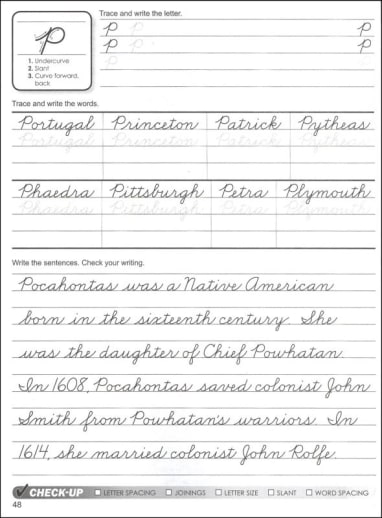 Trace and write the letter.
P P P
P P P
P
P
1. Undercurve
2. Slant
3. Curve forward,
back
Trace and write the words.
Portugal Princeton Patrick Pytheas
Portugal Princeton Patrick Pytheas
Phaedra Pittsburgh Petra Plymouth
Phaedra Pittsburgh Petra Plymouth
Write the sentences. Check your writing.
Pocahontas was a Native American
born in the sixteenth century. She
was the daughter of Chief Powhatan.
In 1608, Pocahontas saved colonist John
Smith from Powhatan's warriors. In
1614, she married colonist John Rolfe.
CHECK-UP LETTER SPACING JOININGS LETTER SIZE SLANT WORD SPACING
48